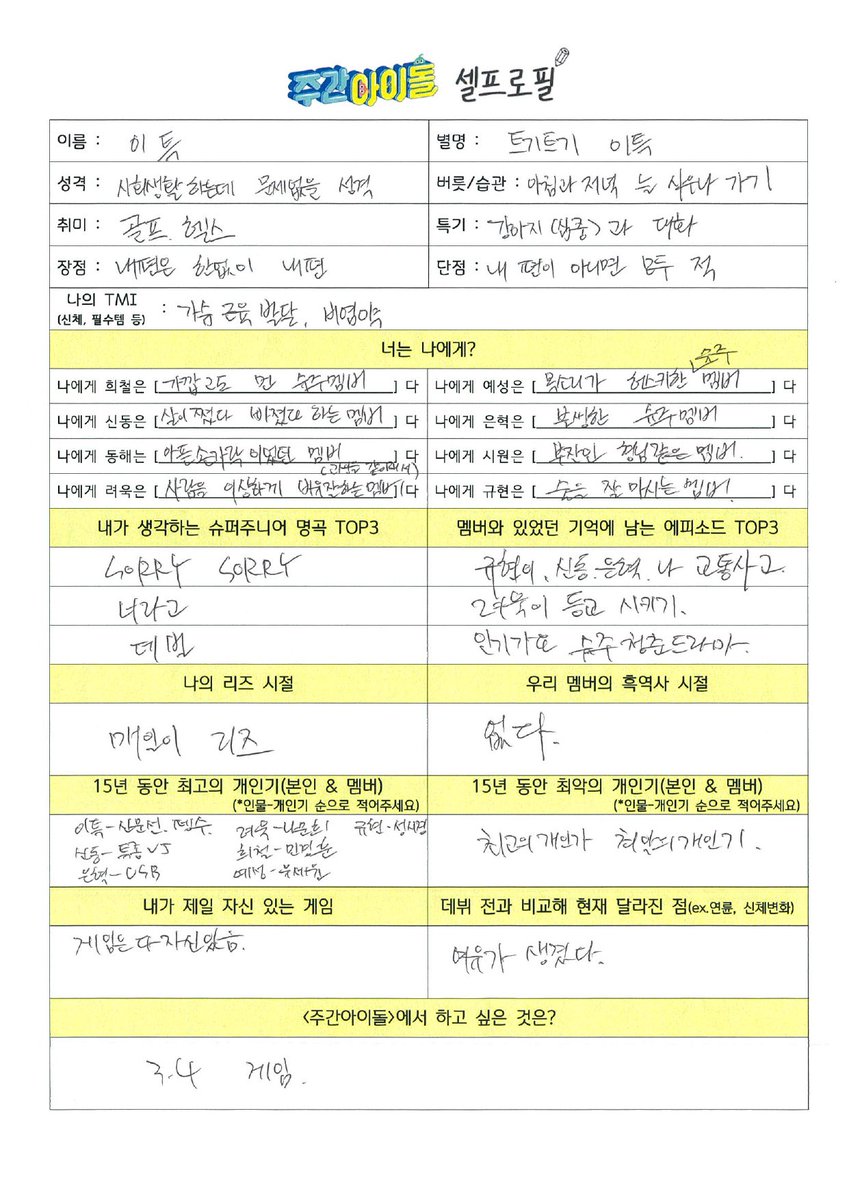 주간아이돌 셀프로필
이름 : 이특
별명 : 트기트기 이특
성격 : 사회생활 하는데 문제없을 성격
버릇/습관 : 아침과 저녁 늘 사우나 가기
취미 : 골프. 헬스
특기 : 강아지(심쿵)과 대화
장점 : 내편은 한없이 내편
단점 : 내 편이 아니면 모두 적
나의 TMI
(신체, 필수템 등) : 가슴 근육 발달, 비염이숙
너는 나에게?
나에게 희철은 [ 가깝고도 먼 슈주멤버 ] 다
나에게 예성은 [ 목소리가 허스키한 슈주 멤버 ] 다
나에게 신동은 [ 살이 쪘다 빠졌다 하는 멤버 ] 다
나에게 은혁은 [ 불쌍한 슈주멤버 ] 다
나에게 동해는 [ 아픈 손가락 이었던 멤버 ] 다
나에게 시원은 [ 부자인 형님같은 멤버. ] 다
나에게 려욱은 [ 사람을 이상하게 바유잘하는멤버 ] 다
나에게 규현은 [ 술을 잘 마시는 멤버. ] 다
내가 생각하는 슈퍼주니어 명곡 TOP3
멤버와 있었던 기억에 남는 에피소드 TOP3
SORRY SORRY
규현이, 신동. 은혁. 나 교통사고.
너라고
려욱이 등교 시키기.
데빌
인기가요 슈주 청춘드라마.
나의 리즈 시절
우리 멤버의 흑역사 시절
매일이 리즈
없다.
15년 동안 최고의 개인기(본인 & 멤버)
(*인물-개인기 순으로 적어주세요)
15년 동안 최악의 개인기(본인 & 멤버)
(*인물-개인기 순으로 적어주세요)
이특-산문선. 펭수. 려욱-나문희 규현-성시경
신동-특종VJ 희철-민경훈
은혁-USB 예성-우사원
최고의개인기가 최악의개인기.
내가 제일 자신 있는 게임
데뷔 전과 비교해 현재 달라진 점(ex.연륜, 신체변화)
게임은 다 자신있음.
여유가 생겼다.
<주간아이돌>에서 하고 싶은 것은?
3.4 게임.